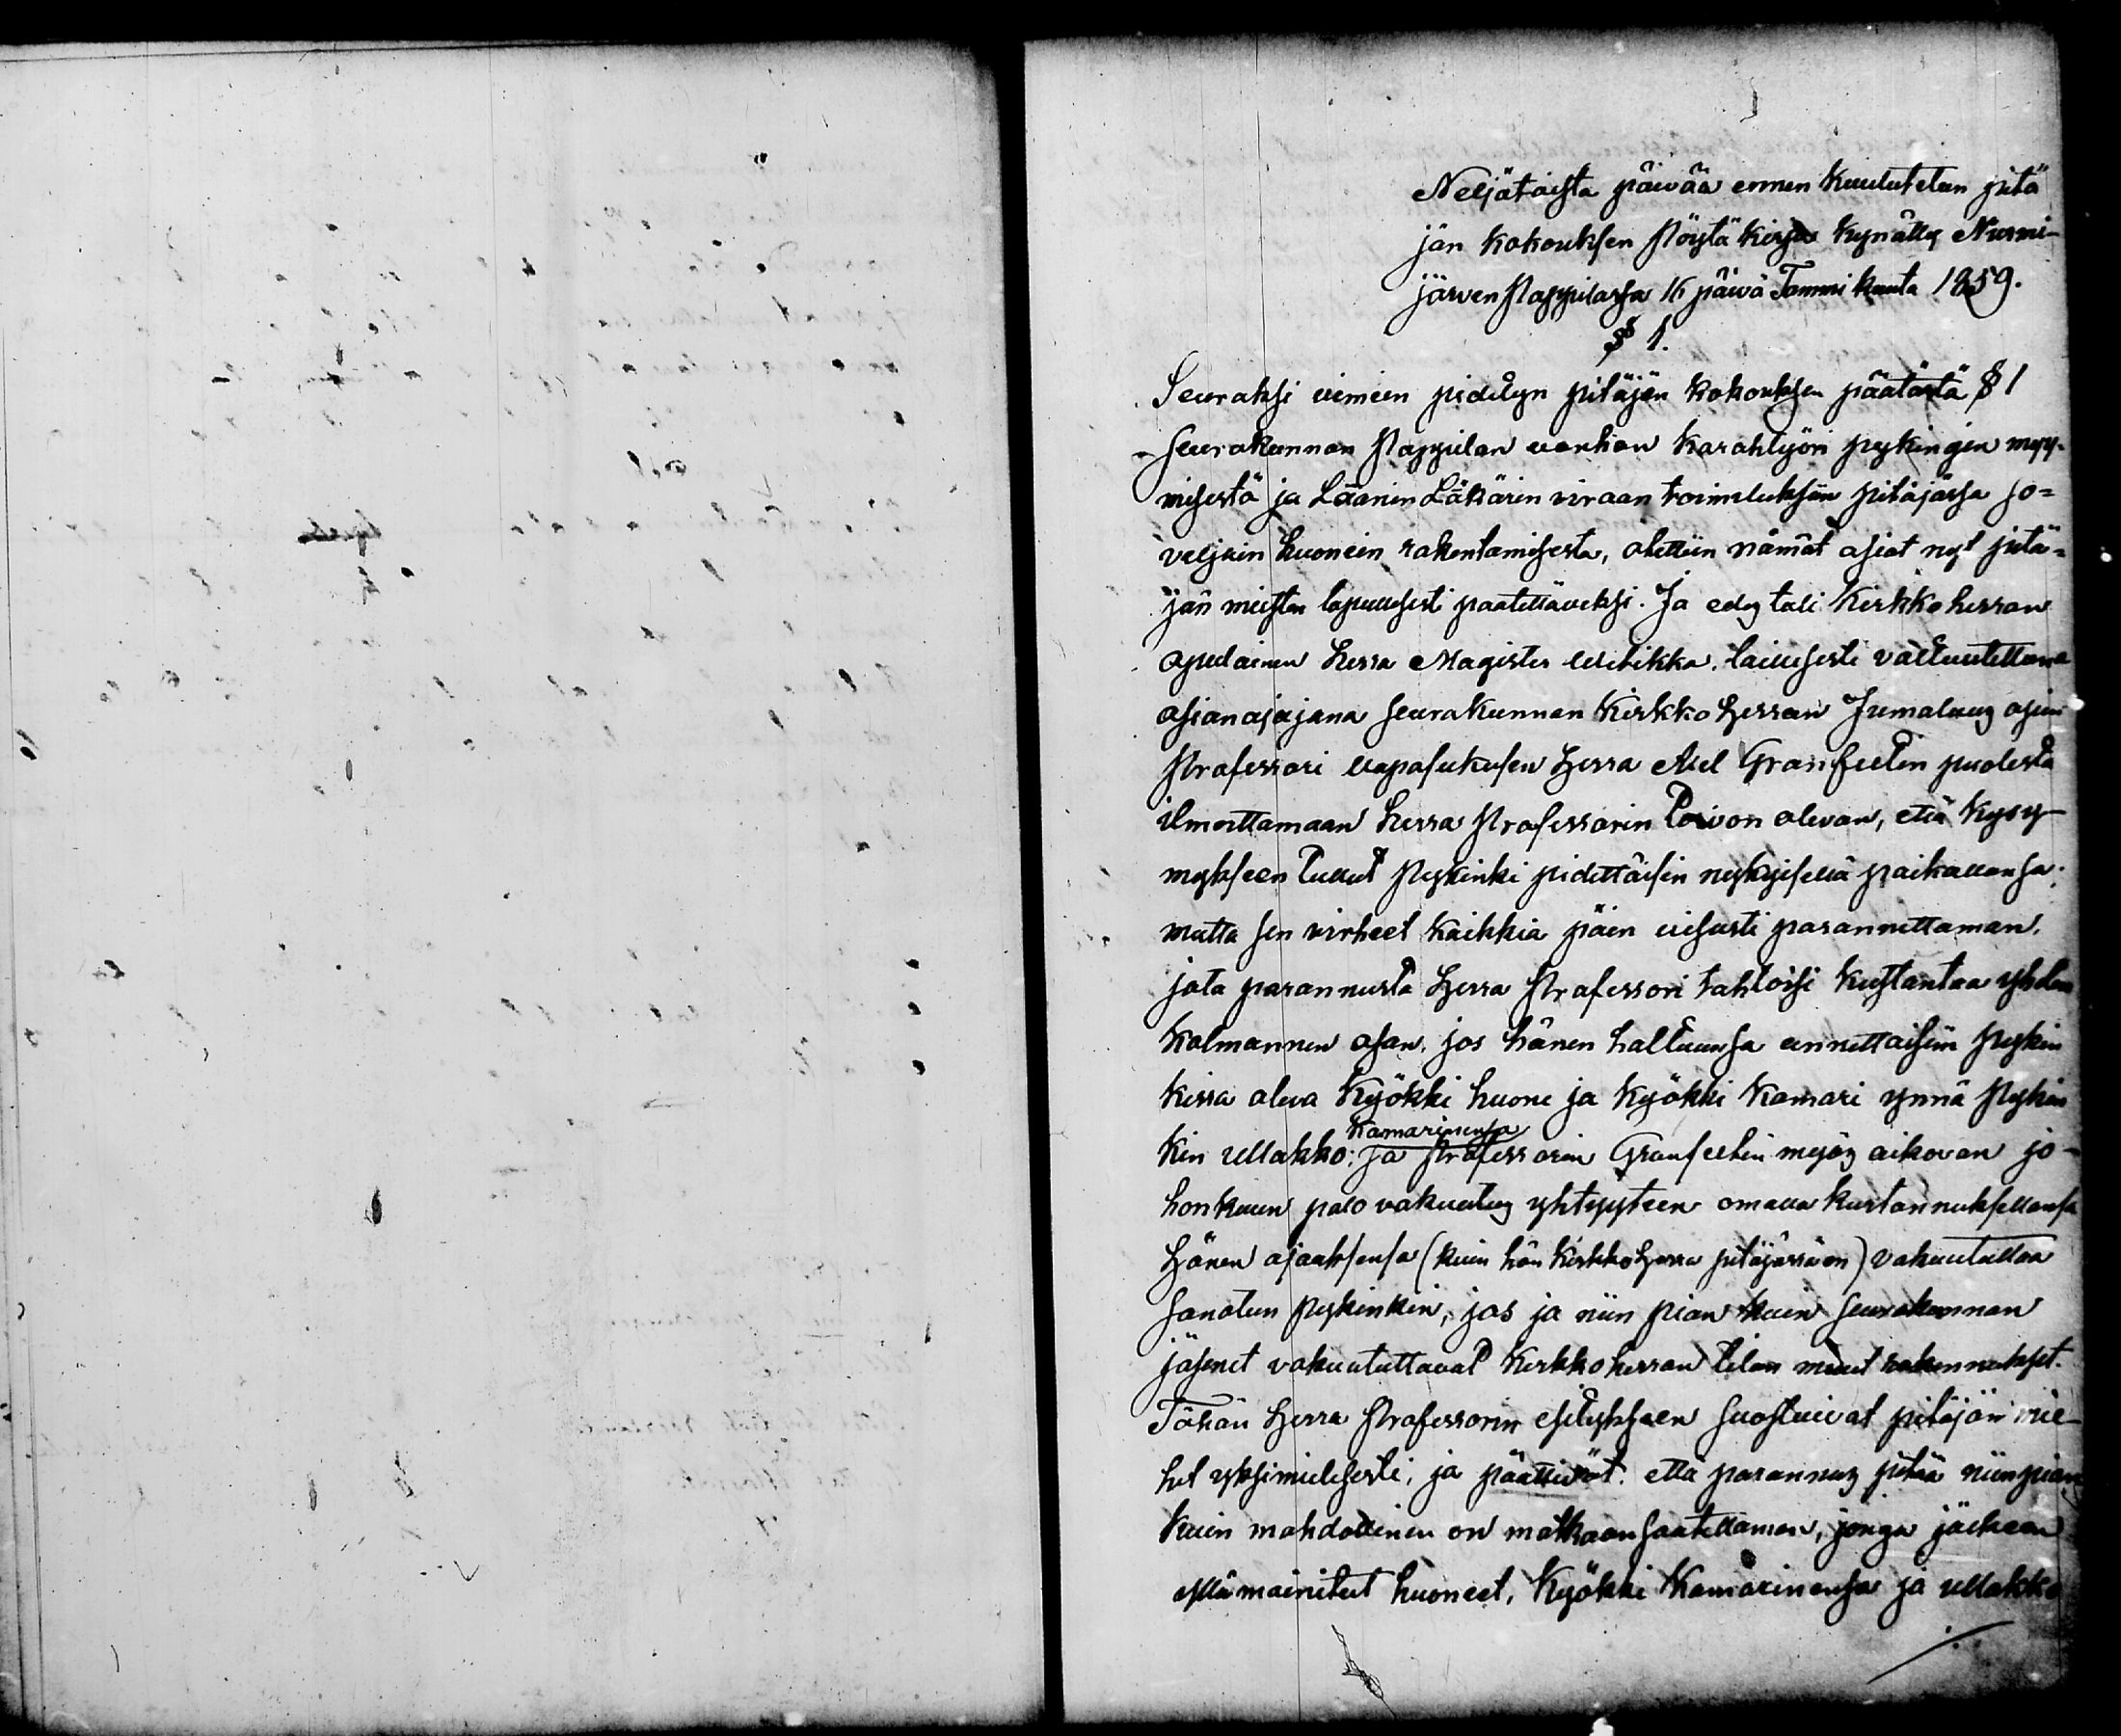 Neljätoista päivää ennen kuulutetun pitä
jän kokouksen Pöytäkirja kynätty Nurmi-
järven Pappilassa 16 päivä Tammikuuta 1859.
§ 1.
Seuraksi viimein pidetyn pitäjän kokouksen päätöstä § 1
Seurakunnan Pappilan vanhan karahtyöri pykingin myy-
misestä ja Läänin Läkärin viraan toimituksiin pitäjässä so=
veljain huonein rakentamisesta, otettiin nämät asiat nyt pitä=
jän miesten lopullisesti paatettäveksi. Ja edes tuli Kirkkoherran
apulainen herra Magister laillisesti valtuutettuna
asianajajana seurakunnan Kirkko Herran Jumaluus opin
Professori vapasukusen Herra Axel Granfeltin puolesta
ilmoittamaan herra Professorin Toivon olevan, että kysy-
mykseen Tullut Pykinki pidettäisin nykyisellä paikallansa;
mutta sen virheet kaikkia päin viisusti parannettaman,
jota parannusta Herra Professori tahtoisi kustantaa yhden
kolmannen osan, jos hänen haltuunsa annettaisiin Pykin
kissa oleva Kyökki huone ja Kyökki kamari ynnä Pykin
Kamarinensa
kin ullakko; ja Professorin Granfeltin myös aikovan jo-
honkuun palo vakuutus yhtyyteen omalla kustannuksellansa
Hänen ajaaksensa (kuin hän KirkkoHerra pitäjässä on) vakuutullaa
sanotun Pykinkin, jos ja niin pian kuin seurakunnan
jäsenet vakuututtavat Kirkkoherran Tilan muut rakennukset.
Tähän Herra Professorin esitykseen suostuivat pitäjän mie-
het yksimielisesti, ja päättivät: että parannus pitää niinpian
kuin mahdollinen on matkaan saatettaman, jonga jäikeen
yllämainitut huoneet, Kyökki Kamarinensa ja ullakko
./.